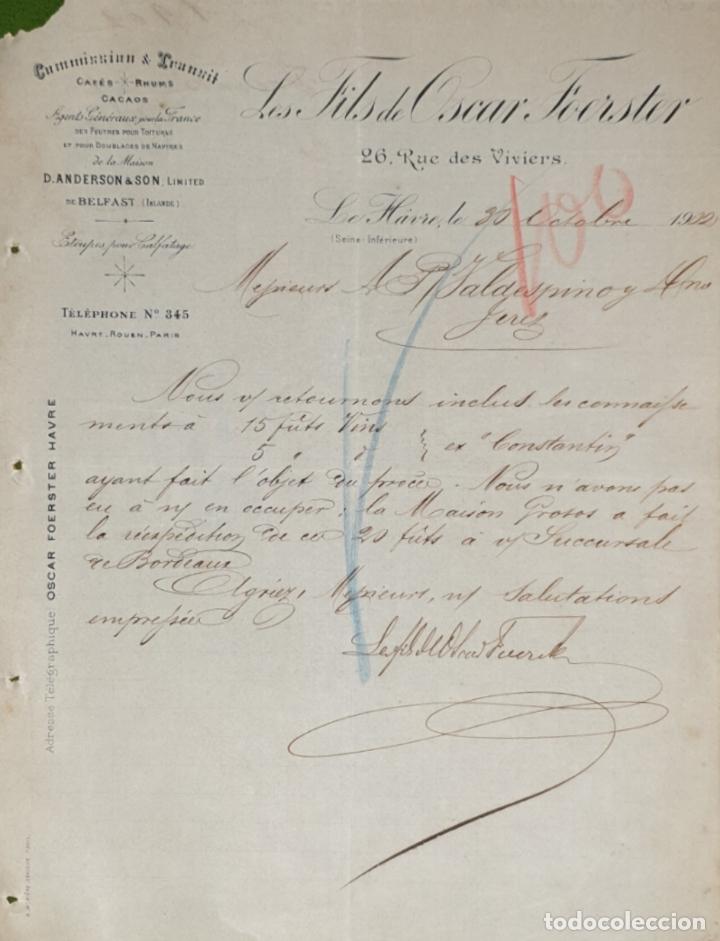 Commission & Transit
CAFÉS RHUMS
CACAOS
Agents Généraux pour la France
DES FEUTRES POUR TOITURES
ET POUR DOUBLAGES DE NAVIRES
de la Maison
D. ANDERSON & SON, LIMITED
DE BELFAST (IRLANDE)
Etoupes pour Calfatage
TÉLÉPHONE Nº 345
HAVRE-ROUEN-PARIS
Adresse Télégraphique OSCAR FOERSTER HAVRE
Les Fils de Oscar Foerster
26, Rue des Viviers.
Le Hâvre, le 30 Octobre 1902
(Seine-Inférieure)
Messieurs A. R. Valdespino y Hno
Jerez
Nous v/ retournons inclus les connaisse
ments à 15 fûts Vins
5 " d° ex "Constantin"
ayant fait l'objet du procès. Nous n'avons pas
eu à n/ en occuper; la Maison Grosos a fait
la réexpédition de ces 20 fûts à v/ Succursale
de Bordeaux
Agréez, Messieurs, n/ salutations
empressées
Les fils d'Oscar Foerster
todocoleccion
todocoleccion.net